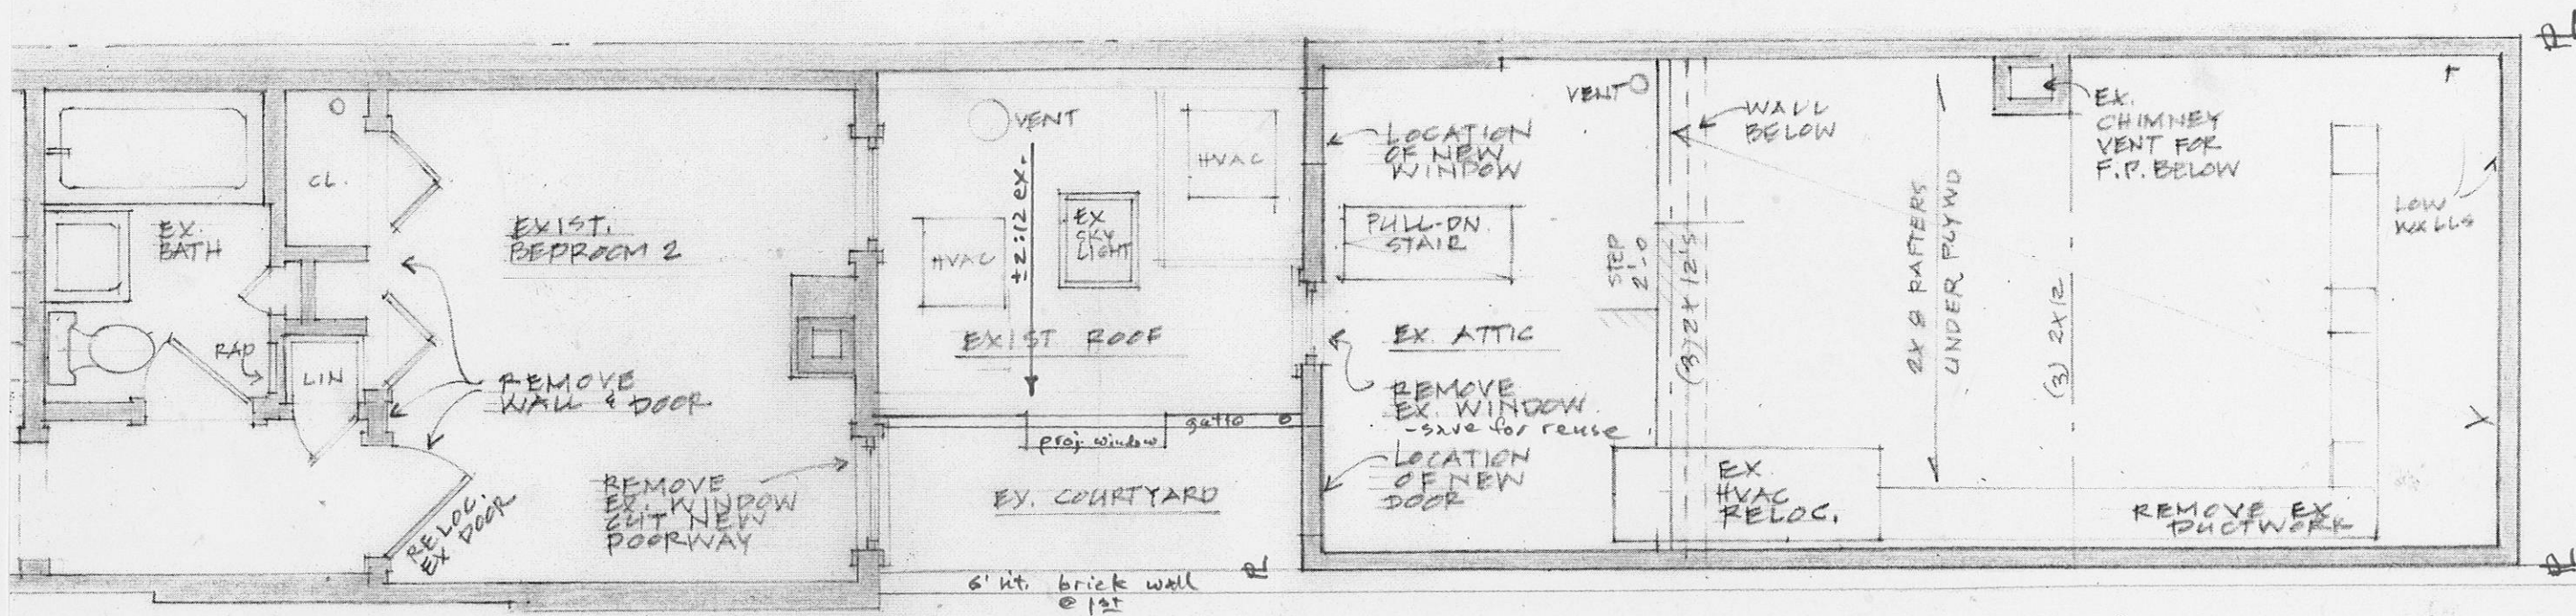 EX.
BATH
RAD
CL.
LIN
EXIST.
BEDROOM 2
REMOVE
WALL & DOOR
RELOC.
EX DOOR
REMOVE
EX. WINDOW
CUT NEW
DOORWAY
VENT
±2:12 ex.
HVAC
EX
SKY
LIGHT
HVAC
EXIST ROOF
proj. window
EX. COURTYARD
6' ht. brick wall
@ 1st
LOCATION
OF NEW
WINDOW
PULL-DN
STAIR
EX. ATTIC
REMOVE
EX. WINDOW
-save for reuse
LOCATION
OF NEW
DOOR
VENT
WALL
BELOW
STEP
2'-0
(3) 2X12'S
EX
HVAC
RELOC.
2X8 RAFTERS
UNDER PLYWD
(3) 2X12
EX.
CHIMNEY
VENT FOR
F.P. BELOW
LOW
WALLS
REMOVE EX
DUCTWORK